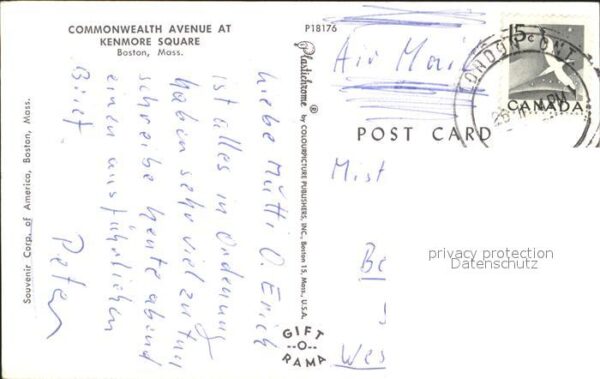 COMMONWEALTH AVENUE AT
KENMORE SQUARE
Boston, Mass.
P18176
Souvenir Corp. of America, Boston, Mass.
Liebe Mutti O. Erich
ist alles in Ordnung
habe sehr viel zu tun
schreibe heute abend
einen ausführlichen
Brief.
Peter
Plastichrome ® by COLOURPICTURE PUBLISHERS, INC., Boston 15, Mass., U.S.A.
GIFT
--O--
RAMA
Air Mail
15c
CANADA
LONDON ONT
PM
POST CARD
Mist
Be
Wes
privacy protection
Datenschutz